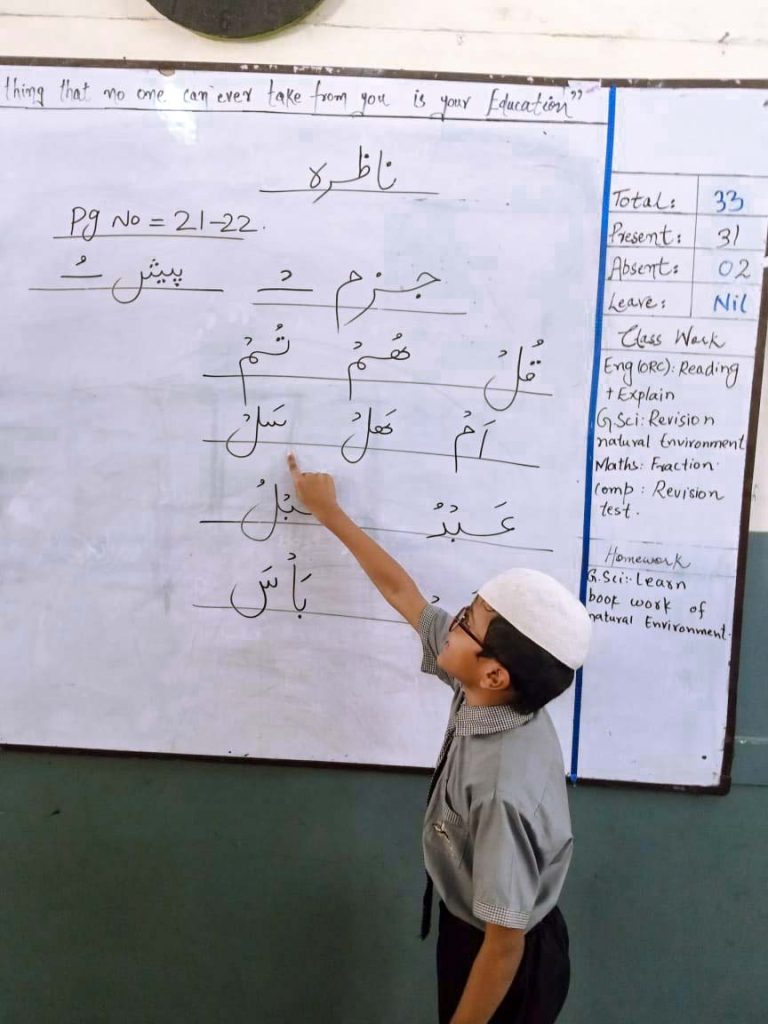 thing that no one can ever take from you is your Education”
ناظرہ
Pg No = 21-22.
جزم ـْـ پیش ـُـ
قُلْ هُمْ تُمْ
اَمْ هَلْ سَلْ
عَبْدُ
بَأْسَ
Total: 33
Present: 31
Absent: 02
Leave: Nil
Class Work
Eng (ORC): Reading
+ Explain
G.Sci: Revision
natural Environment
Maths: Fraction.
Comp: Revision
test.
Homework
G.Sci:- Learn
book work of
natural Environment.